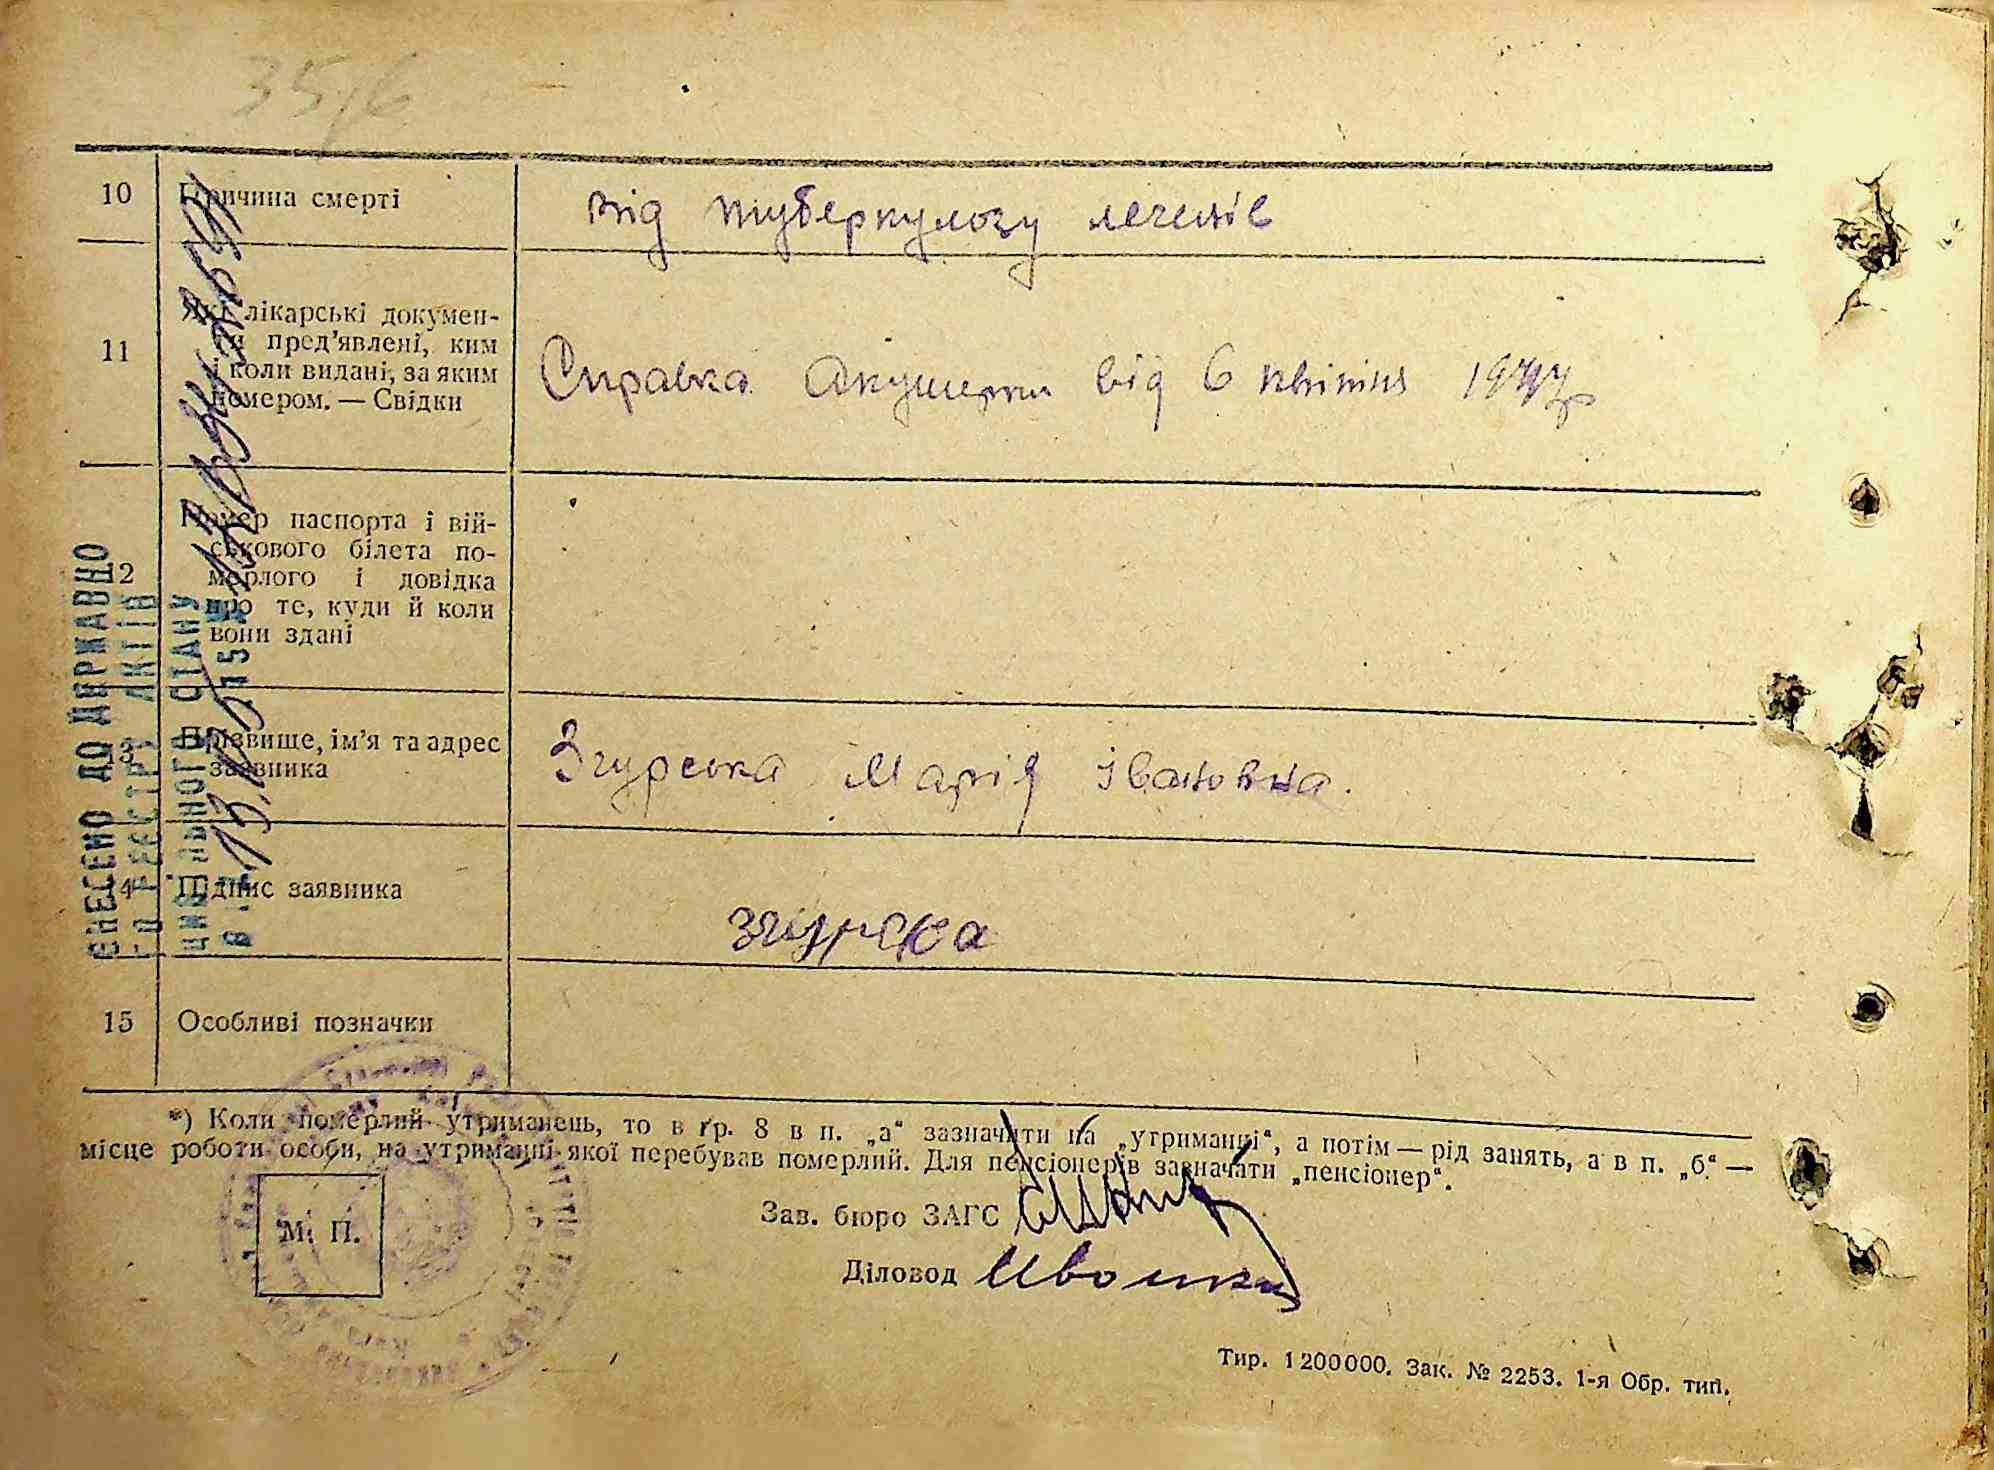 35/6
10 Причина смерті від туберкулозу легенів
11 Які лікарські докумен-
ти пред'явлені, ким
і коли видані, за яким
номером. — Свідки
Справка Акушерки від 6 квітня
12 Номер паспорта і вій-
ськового білета по-
мерлого і довідка
про те, куди й коли
вони здані
13 Прізвище, ім'я та адрес
заявника
Згурська Марія Івановна.
14 Підпис заявника
згурска
15 Особливі позначки
*) Коли померлий утриманець, то в гр. 8 в п. „а“ зазначити на „утриманні“, а потім — рід занять, а в п. „б“ —
місце роботи особи, на утриманні якої перебував померлий. Для пенсіонерів зазначати „пенсіонер“.
М. П.
Зав. бюро ЗАГС
Діловод
Тир. 1 200 000. Зак. № 2253. 1-я Обр. тип.
ВНЕСЕНО ДО ДЕРЖАВНО
ГО РЕЄСТРУ АКТІВ
ЦИВІЛЬНОГО СТАНУ